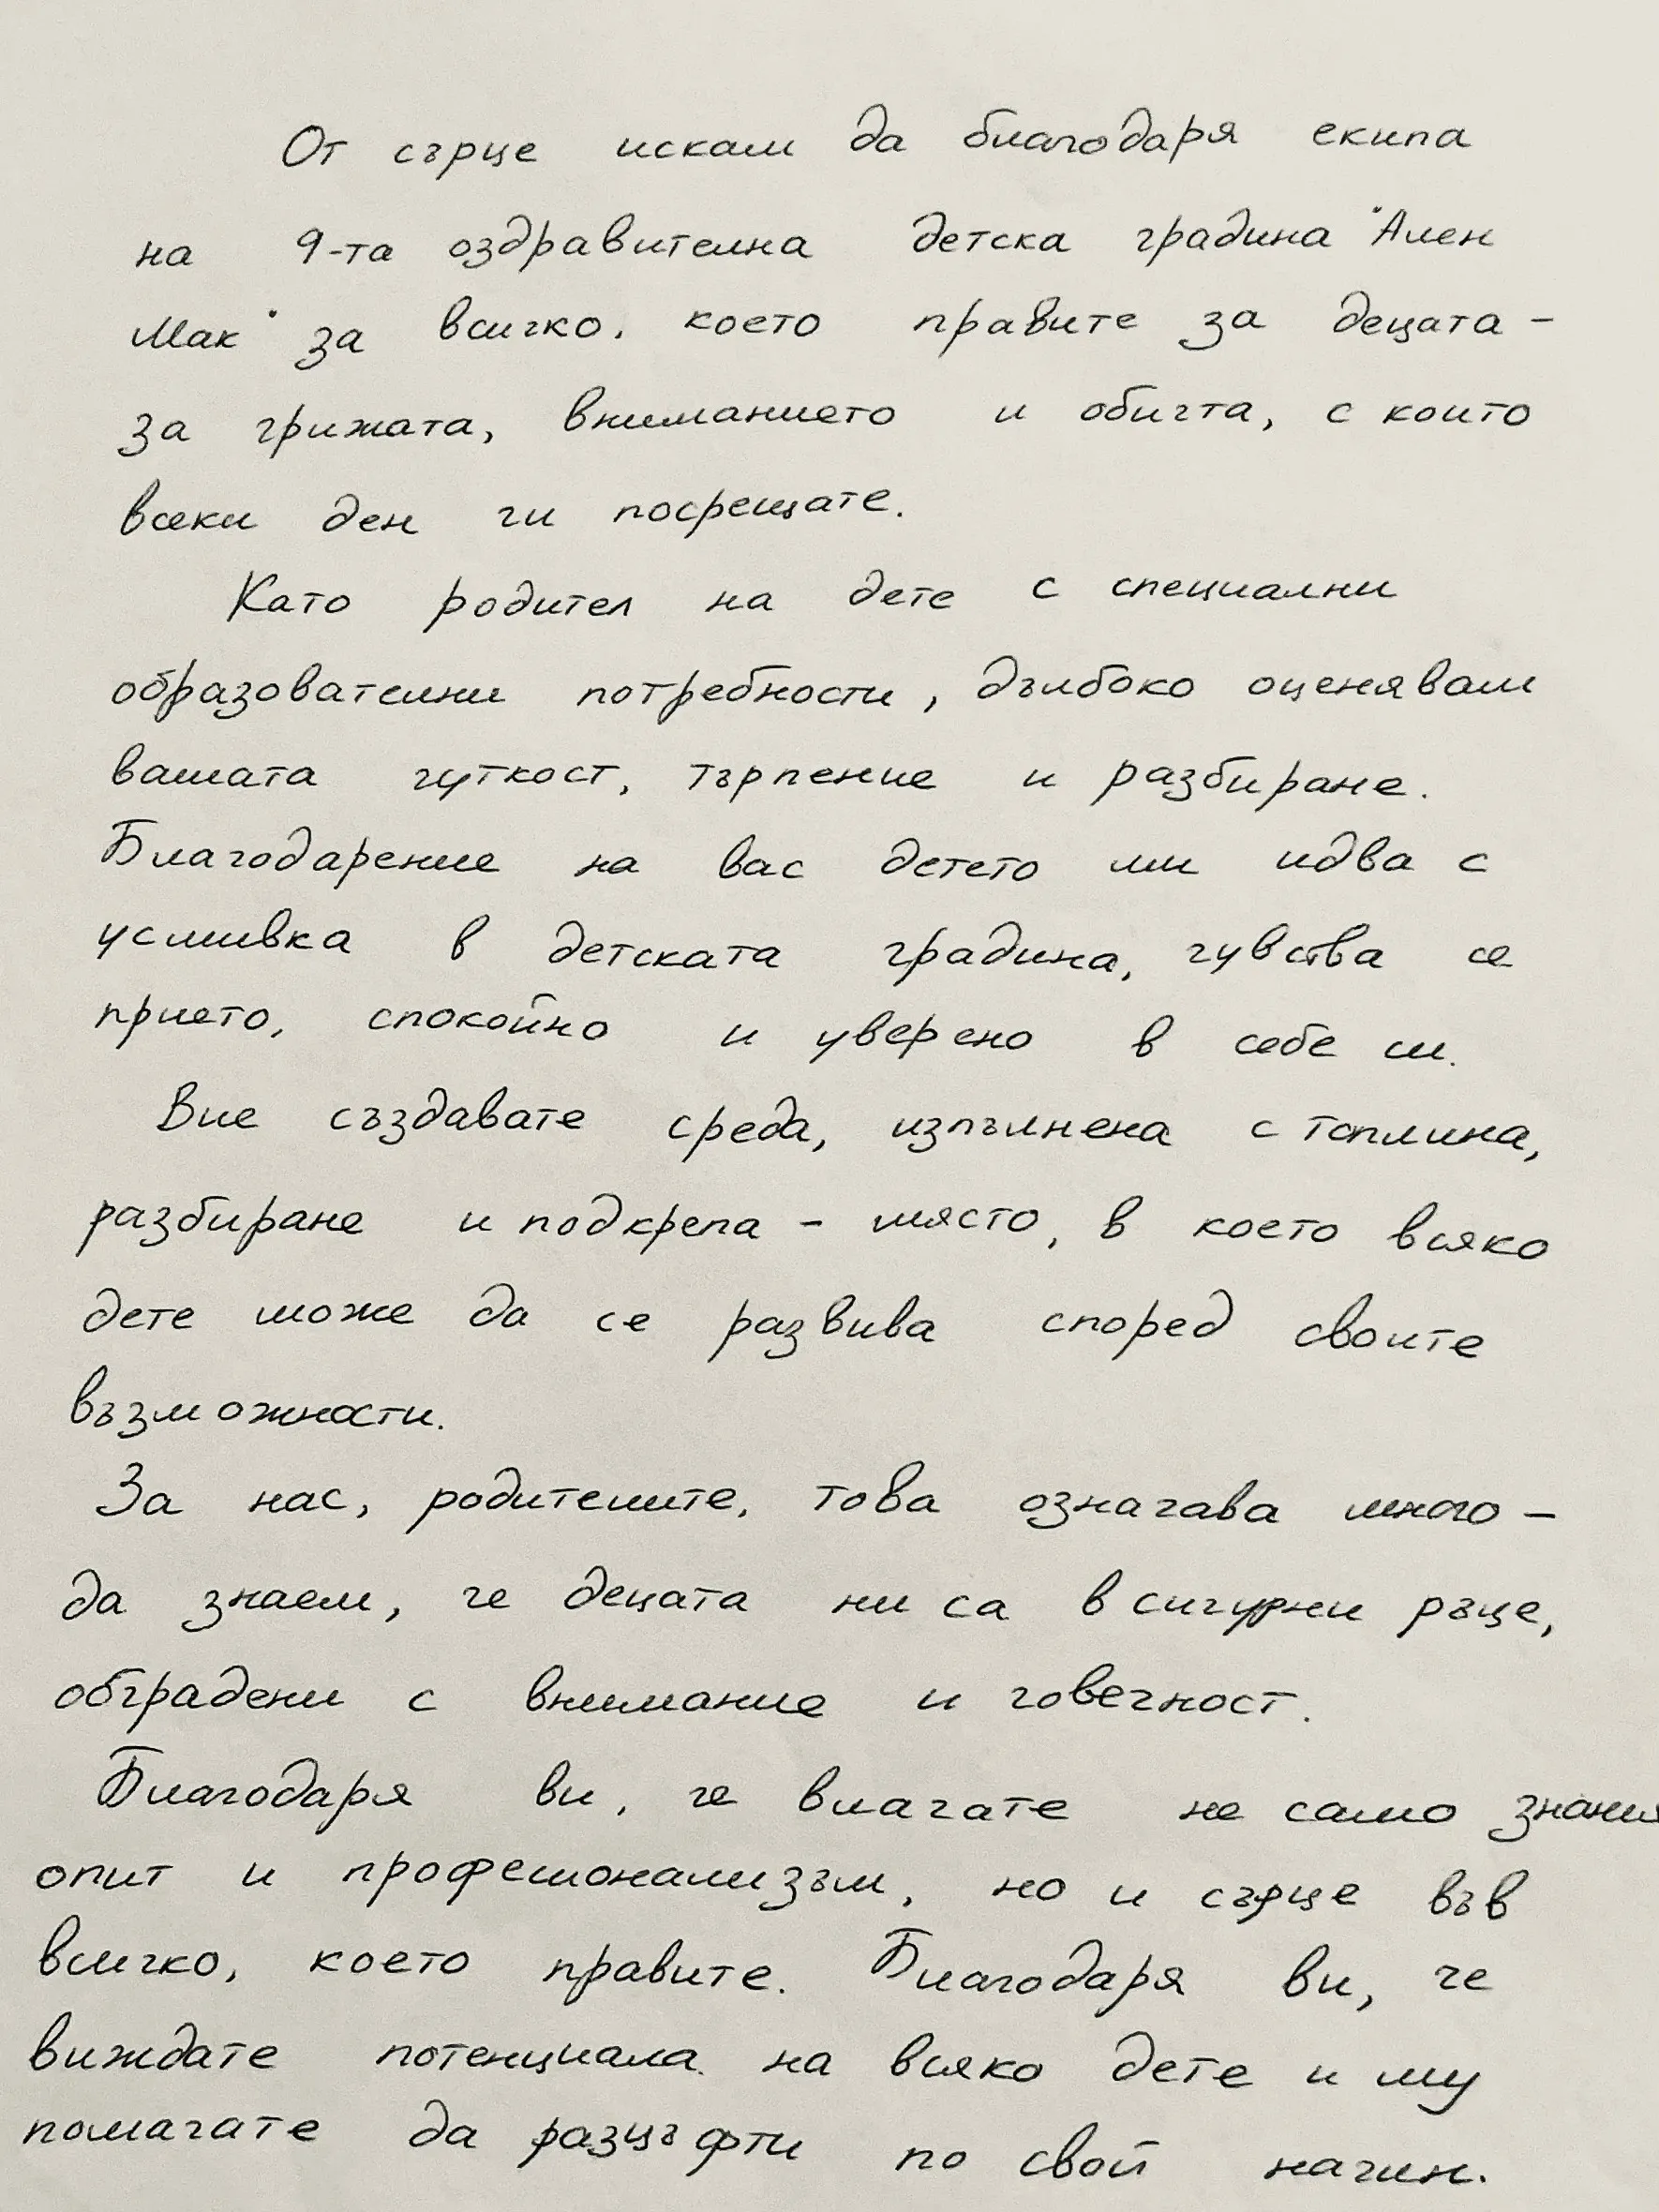 От сърце искам да благодаря екипа
на 9-та оздравителна детска градина "Ален
Мак" за всичко, което правите за децата -
за грижата, вниманието и обичта, с които
всеки ден ги посрещате.
Като родител на дете с специални
образователни потребности, дълбоко оценявам
вашата чуткост, търпение и разбиране.
Благодарение на вас детето ми идва с
усмивка в детската градина, чувства се
прието, спокойно и уверено в себе си.
Вие създавате среда, изпълнена с топлина,
разбиране и подкрепа - място, в което всяко
дете може да се развива според своите
възможности.
За нас, родителите, това означава много -
да знаем, че децата ни са в сигурни ръце,
обградени с внимание и човечност.
Благодаря ви, че влагате не само знания
опит и професионализъм, но и сърце във
всичко, което правите. Благодаря ви, че
виждате потенциала на всяко дете и му
помагате да разцъфти по свой начин.